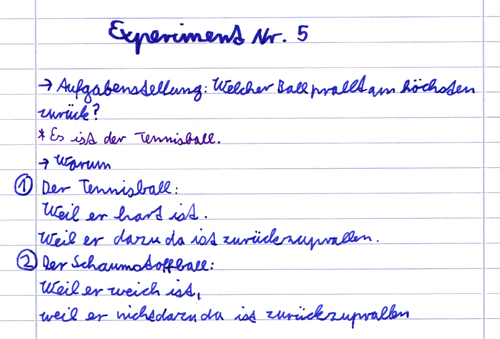 Experiment Nr. 5
→ Aufgabenstellung: Welcher Ball prallt am höchsten
zurück?
* Es ist der Tennisball.
→ Warum
① Der Tennisball:
Weil er hart ist.
Weil er dazu da ist zurückzuprallen.
② Der Schaumstoffball:
Weil er weich ist,
weil er nicht dazu da ist zurückzuprallen